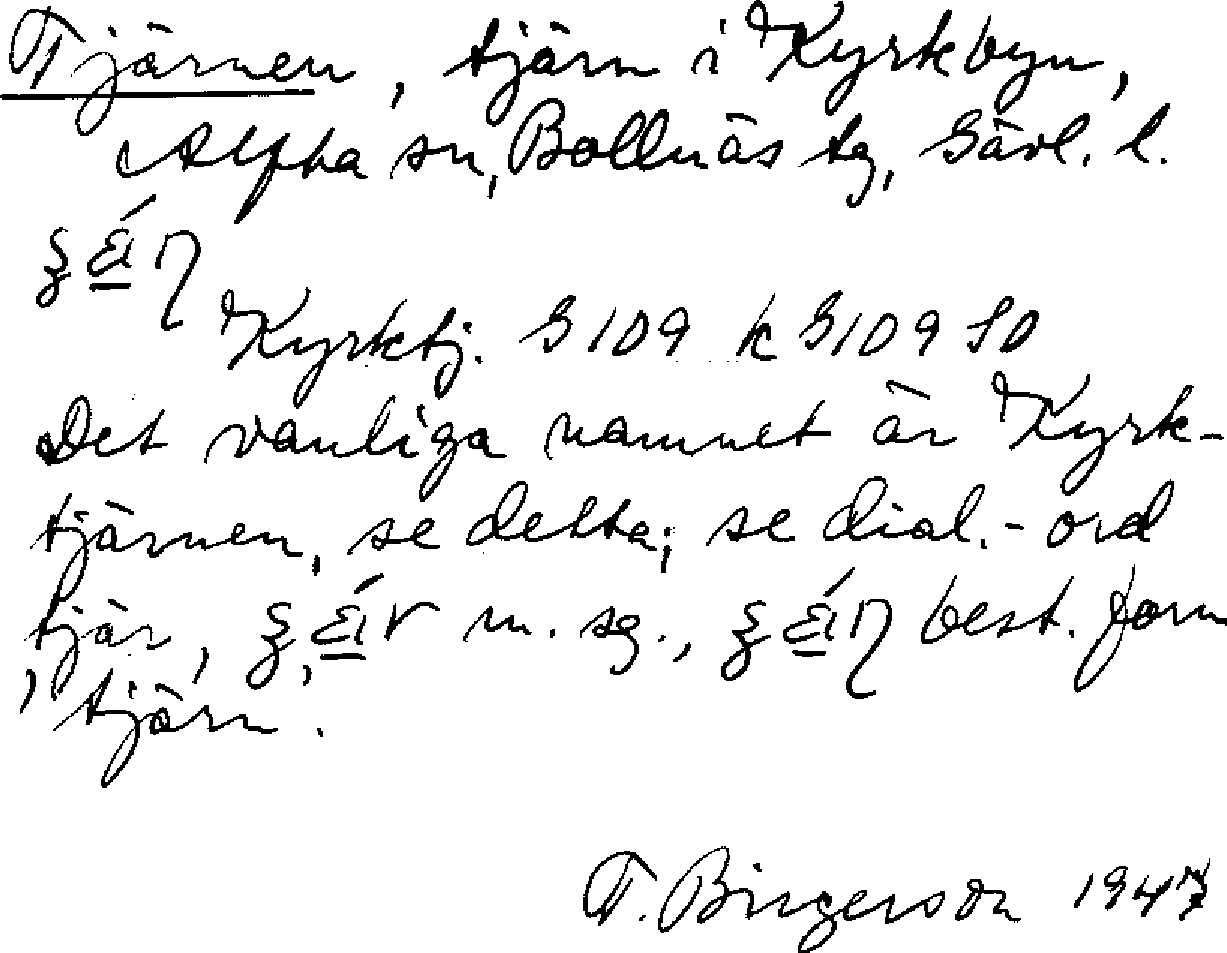 Tjärnen, tjärn i Kyrkbyn,
Alfta sn, Bollnäs tg, Gävl. l.
Kyrktj. G109 k G109 SO
Det vanliga namnet är Kyrk-
tjärnen, se detta; se dial.-ord
tjär, m. sg., best. form
'tjärn'.
T. Birgerson 1947